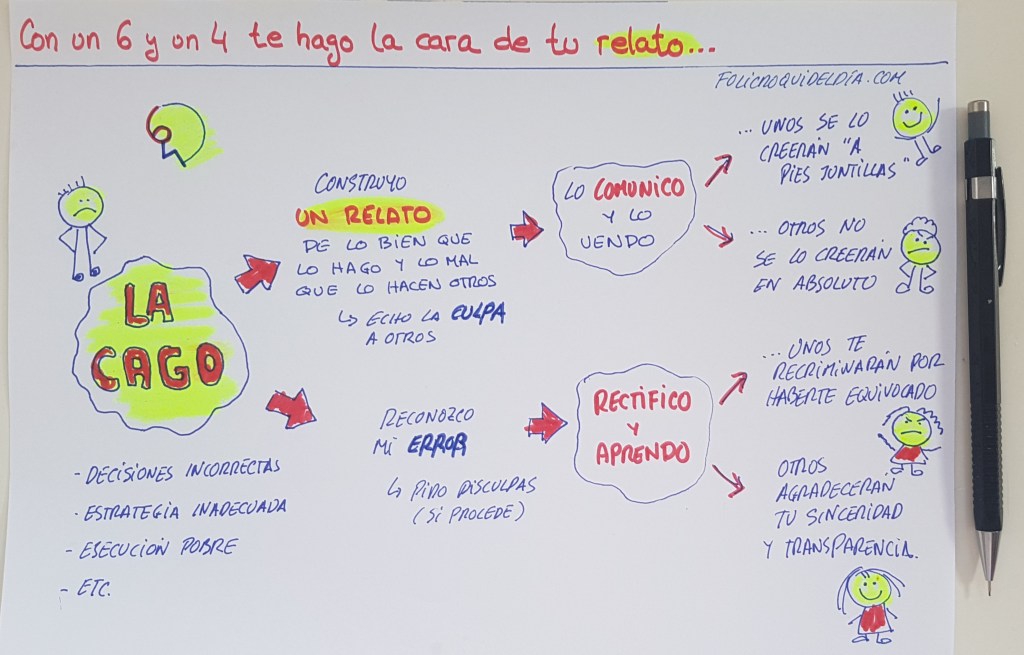 Con un 6 y un 4 te hago la cara de tu relato...
FOLICROQUIDELDÍA.COM
LA
CAGO
- DECISIONES INCORRECTAS
- ESTRATEGIA INADECUADA
- EJECUCIÓN POBRE
- ETC.
CONSTRUYO
UN RELATO
DE LO BIEN QUE
LO HAGO Y LO MAL
QUE LO HACEN OTROS
↳ ECHO LA CULPA
A OTROS
LO COMUNICO
Y LO
VENDO
... UNOS SE LO
CREERÁN "A
PIES JUNTILLAS"
... OTROS NO
SE LO CREERÁN
EN ABSOLUTO
RECONOZCO
MI ERROR
↳ PIDO DISCULPAS
(SI PROCEDE)
RECTIFICO
Y
APRENDO
... UNOS TE
RECRIMINARÁN POR
HABERTE EQUIVOCADO
OTROS
AGRADECERÁN
TU SINCERIDAD
Y TRANSPARENCIA.